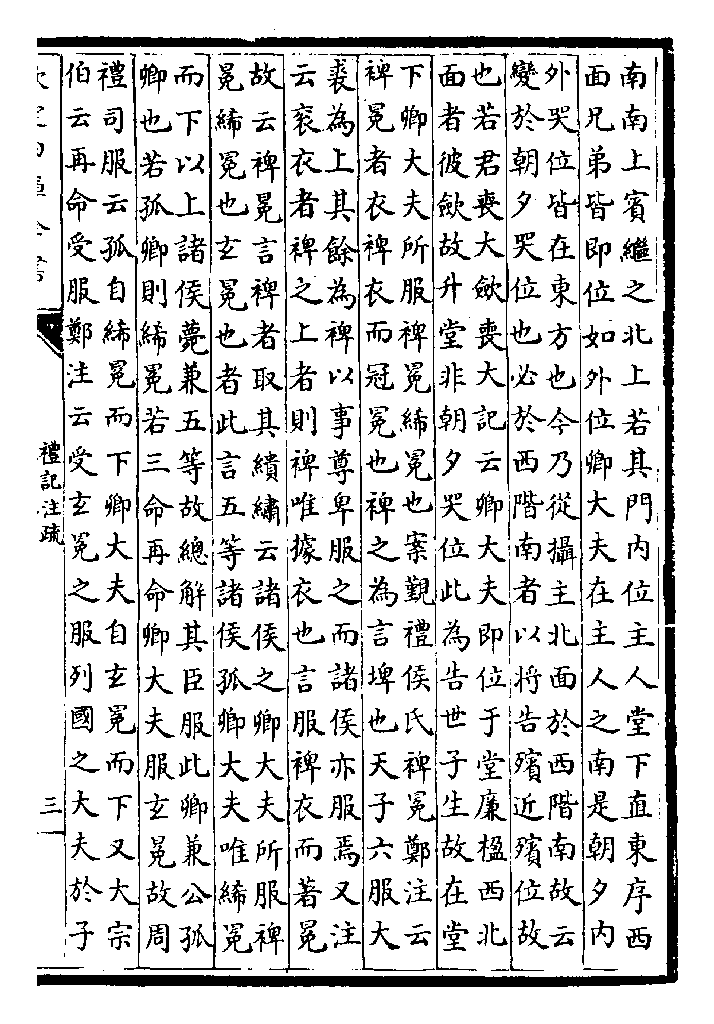 南南上賓繼之北上若其門内位主人堂下直東序西
面兄弟皆即位如外位卿大夫在主人之南是朝夕内
外哭位皆在東方也今乃從攝主北面於西階南故云
變於朝夕哭位也必於西階南者以將告殯近殯位故
也若君喪大歛喪大記云卿大夫即位于堂廉楹西北
面者彼歛故升堂非朝夕哭位此為告世子生故在堂
下卿大夫所服裨冕絺冕也案覲禮侯氏裨冕鄭注云
裨冕者衣裨衣而冠冕也裨之為言埤也天子六服大
裘為上其餘為裨以事尊卑服之而諸侯亦服焉又注
云衮衣者裨之上者則裨唯據衣也言服裨衣而著冕
故云裨冕言裨者取其繢繡云諸侯之卿大夫所服裨
冕絺冕也玄冕也者此言五等諸侯孤卿大夫唯絺冕
而下以上諸侯薨兼五等故總解其臣服此卿兼公孤
卿也若孤卿則絺冕若三命再命卿大夫服玄冕故周
禮司服云孤自絺冕而下卿大夫自玄冕而下又大宗
伯云再命受服鄭注云受玄冕之服列國之大夫於子
禮記注疏
三